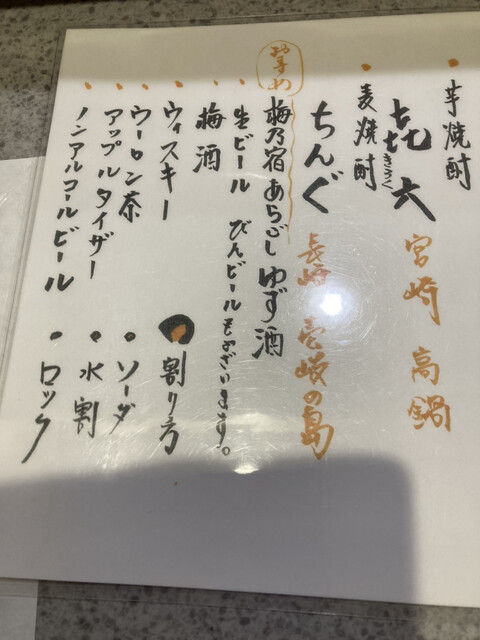 芋焼酎
㐂六 宮崎 高鍋
きろく
麦焼酎
ちんぐ 長崎 壱岐の島
おすすめ
梅乃宿 あらごし ゆず酒
生ビール びんビールもございます。
梅酒
ウィスキー
ウーロン茶
アップルタイザー
ノンアルコールビール
割り方
ソーダ
水割
ロック